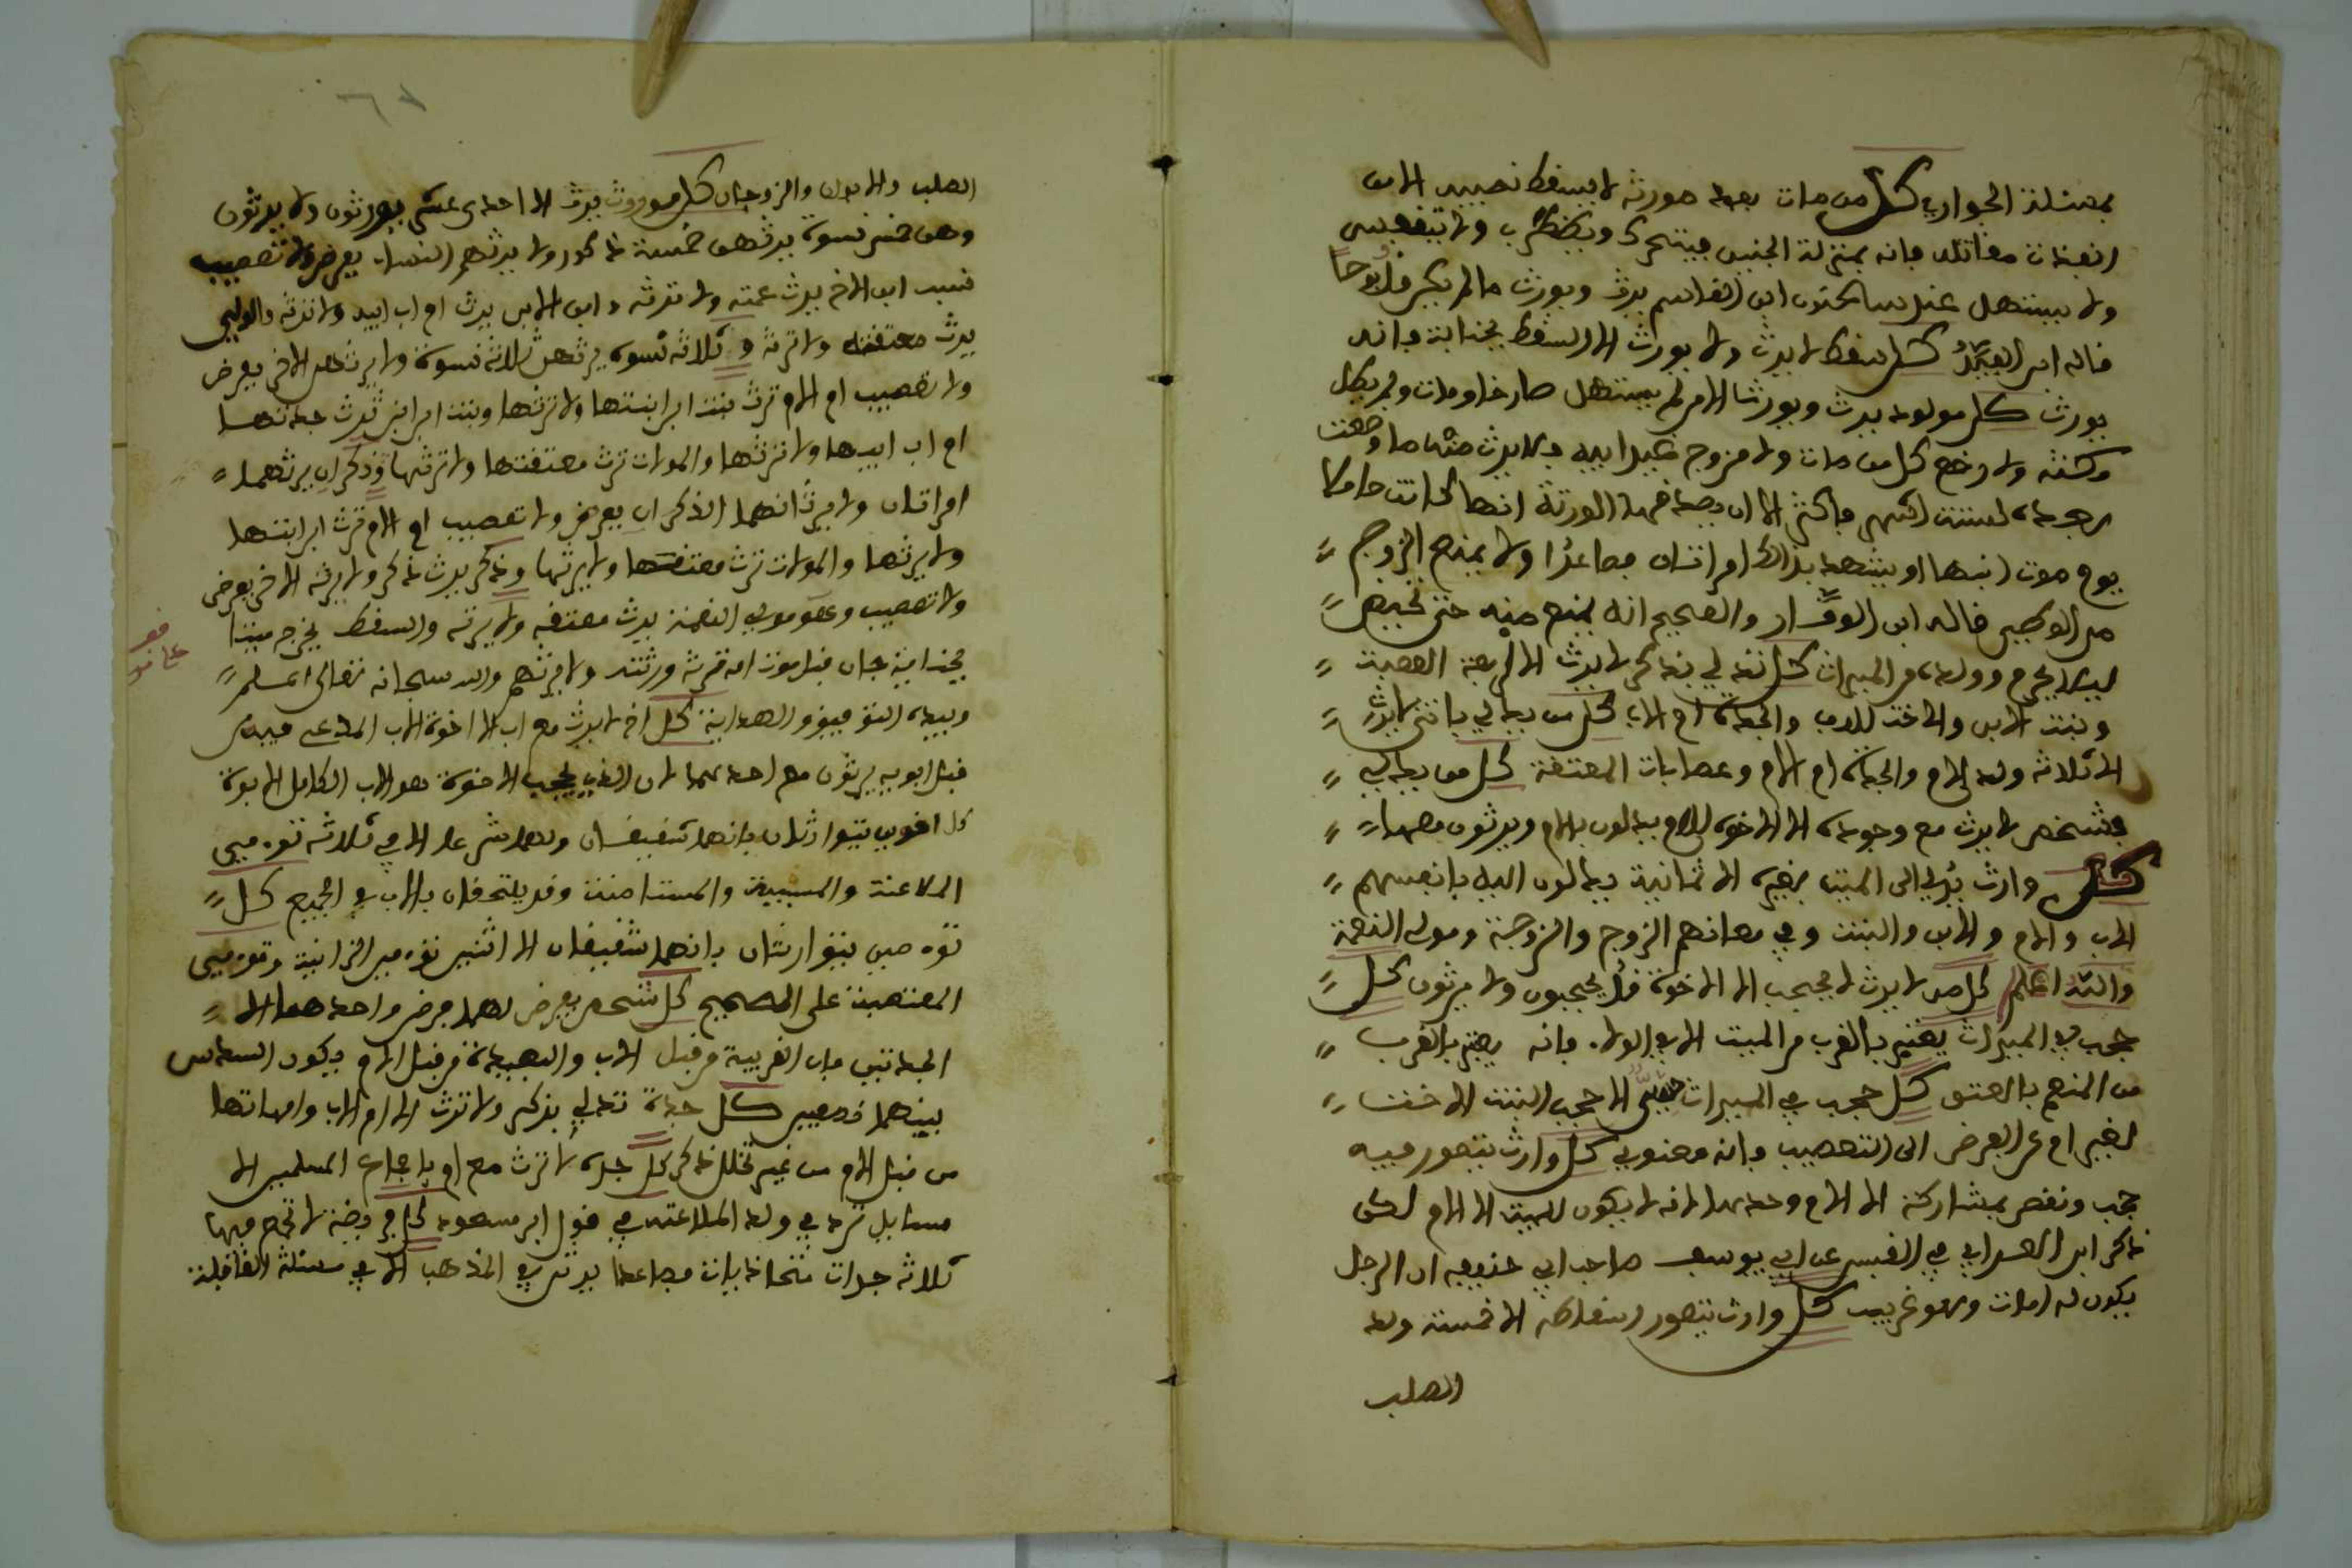 بمسئلة الجواري كل من مات بعد مورثه لا يسقط نصيبه الا من
انفذت مقاتله فانه بمنزلة الجنين فيتحرك ويضطرب ولا يتنفس
ولا يستهل عند سحنون ابن القاسم يرث ويورث ما لم يكن مذبوحا
قاله ابن كل سقط لا يرث ولا يورث الا السقط بجناية فانه
يورث كل مولود يرث ويورث الا من لم يستهل صارخا ومات ولم يطل
مكثه ولا رضع كل من مات وله م زوج غير ابيه فلا يرث منها ما وضعت
بعده لستة اشهر فاكثر الا ان يصدقها الورثة انها كانت حاملا
يوم موت ابنها او يشهد بذلك امراتان فصاعدا ولا يمنع الزوج
من الوطء قاله ابن والصحيح انه يمنع منه حتى تحيض
ليلا يحرم ولده من الميراث كل انثى تدلي بذكر لا يرث الا اربعة العصبة
وبنت الابن والاخت للاب والجدة ام الاب كل من يدلي بانثى لا يرث
الا ثلاثة ولد الام والجدة ام الام وعصابات المعتقة كل من يدلي
بشخص لا يرث مع وجوده الا الاخوة للام يدلون بالام ويرثون معها
كل وارث يدلي الى الميت بغيره الا ثمانية يدلون اليه بانفسهم
الاب والام والابن والبنت وفي معانهم الزوج والزوجة ومولى النعمة
والله اعلم كل من لا يرث لا يحجب الا الاخوة قد يحجبون ولا يرثون كل
حجب في الميراث يعتبر بالقرب من الميت الا في الولاء فانه يعتبر بالقرب
من المنعم بالعتق كل حجب في الميراث حسي الا حجب البنت الاخت
لغير ام عن الفرض الى التعصيب فانه معنوي كل وارث يتصور فيه
حجب ونقص بمشاركة الا الام وحدها لانه لا يكون للميت الا ام لكن
ذكر ابن العربي في القبس عن ابي يوسف صاحب ابي حنيفة ان الرجل
يكون له امان وهو غريب كل وارث يتصور اسقاطه الا خمسة ولد
الصلب
الصلب والابوان والزوجان كل موروث يرث الا احدى عشر يورثون ولا يرثون
وهن خمس نسوة يرثهن خمسة ذكور ولا يرثهم النساء بفرض ولا تعصيب
نسب ابن الاخ يرث عمته ولا ترثه وابن الابن يرث ام اب ابيه ولا ترثه والمولى
يرث معتقته ولا ترثه وثلاثة نسوة يرثهن ثلاثة نسوة ولا يرثهن الاخر بفرض
ولا تعصيب ام الام ترث بنت ابن ابنتها ولا ترثها وبنت ابن ابن ترث جدتها
ام اب ابيها ولا ترثها والمولات ترث معتقتها ولا ترثها وذكران يرثهما
امراتان ولا يرثانهما الذكران بفرض ولا تعصيب ام الام ترث ابن ابنتها
ولا يرثها والمولات ترث معتقها ولا يرثها وذكر يرث ذكر ولا يرثه الاخر بفرض
ولا تعصيب وهو مولى النعمة يرث معتقه ولا يرثه والسقط يخرج ميتا
بجناية جان قبل موت امه ترثه ورثته ولا يرثهم والله سبحانه تعالى اعلم
وبيده التوفيق والهداية كل اخ لا يرث مع اب الا اخوة الاب المدعى فيه
قبل ابويه يرثون مع احدهما لان الذي يحجب الاخوة هو الاب الكامل الابوة
كل اخوين يتوارثان بانهما شقيقان ولهما شرعا الا في ثلاثة توءمي
الملاعنة والمسبية والمستامنة وقد يلتحقان بالاب في الجميع كل
توءمين يتوارثان بانهما شقيقان الا اثنين توءمين الزانية وتوءمي
المغتصبة على الصحيح كل شخص يفرض لهما فرض واحد هما الا
الجدتين فان القريبة من قبل الاب والبعيدة من قبل الام يكون السدس
بينهما نصفين كل جدة تدلي بذكر ولا ترث الا ام الاب وامهاتها
من قبل الام من غير تخلل ذكر كل جدة لا ترث مع ام باجماع المسلمين الا
مسايل ترد في ولد الملاعنة في قول ابن مسعود كل فريضة لا تجتمع فيها
ثلاثة جدات متحاذيات فصاعدا يرثن في المذهب الا في مسئلة القافلة